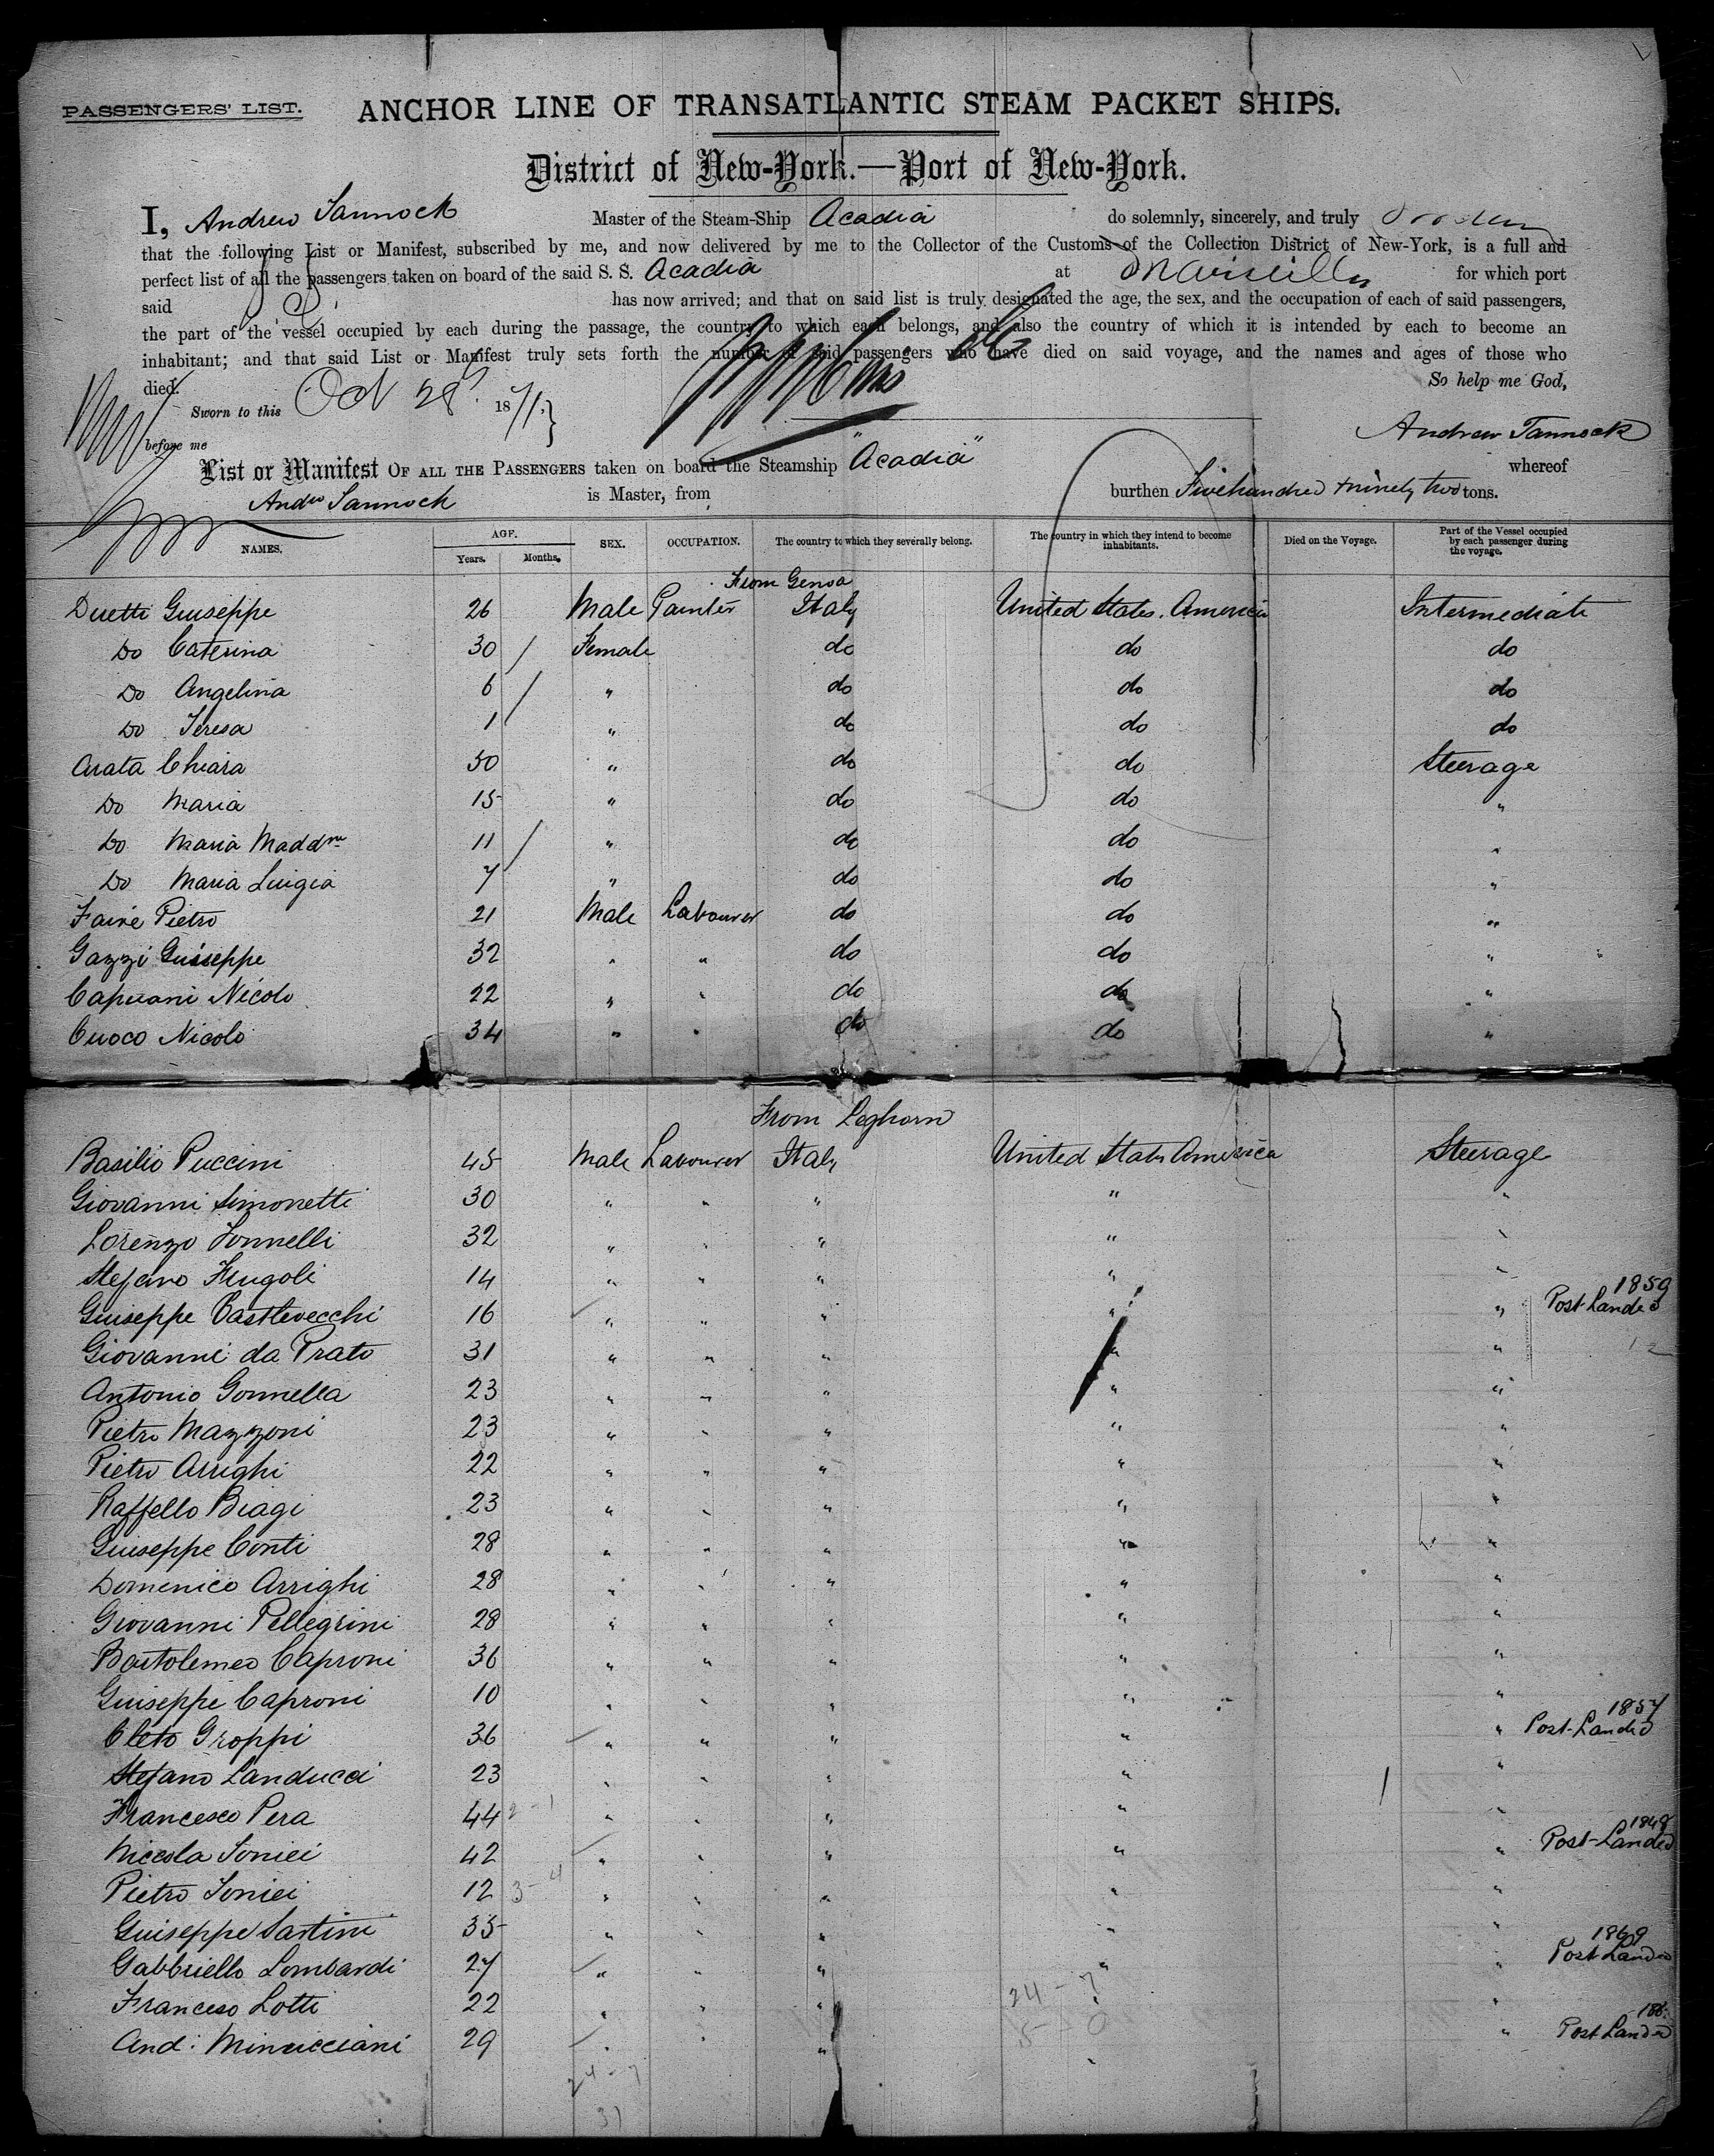 PASSENGERS' LIST. ANCHOR LINE OF TRANSATLANTIC STEAM PACKET SHIPS.
District of New-York.—Port of New-York.
I, Andrew Tannock Master of the Steam-Ship Acadia do solemnly, sincerely, and truly
that the following List or Manifest, subscribed by me, and now delivered by me to the Collector of the Customs of the Collection District of New-York, is a full and
perfect list of all the passengers taken on board of the said S. S. Acadia at Marseilles for which port
said has now arrived; and that on said list is truly designated the age, the sex, and the occupation of each of said passengers,
the part of the vessel occupied by each during the passage, the country to which each belongs, and also the country of which it is intended by each to become an
inhabitant; and that said List or Manifest truly sets forth the number of said passengers who have died on said voyage, and the names and ages of those who
died. So help me God,
Sworn to this Oct 28 1871 }
before me Andrew Tannock
List or Manifest OF ALL THE PASSENGERS taken on board the Steamship "Acadia" whereof
Andw Tannock is Master, from burthen Five hundred & ninety two tons.
NAMES. AGE. Years. Months. SEX. OCCUPATION. The country to which they severally belong. The country in which they intend to become inhabitants. Died on the Voyage. Part of the Vessel occupied by each passenger during the voyage.
From Genoa
Duetti Giuseppe 26 Male Painter Italy United States. America Intermediate
Do Caterina 30 / Female do do do
Do Angelina 6 / " do do do
Do Teresa 1 " do do do
Arata Chiara 50 " do do Steerage
Do Maria 15 " do do "
Do Maria Maddna 11 / " do do "
Do Maria Luigia 7 " do do "
Faire Pietro 21 Male Labourer do do "
Gazzi Guiseppe 32 " " do do "
Capuani Nicolo 22 " " do do "
Cuoco Nicolo 34 " " do do "
From Leghorn
Basilio Puccini 45 Male Labourer Italy United States America Steerage
Giovanni Simonetti 30 " " " " "
Lorenzo Tonnelli 32 " " " " "
Stefano Frugoli 14 " " " " "
Guiseppe Castlevecchi 16 " " " " " Post-Landed 1859
Giovanni da Prato 31 " " " " "
Antonio Gonnella 23 " " " " "
Pietro Mazzoni 23 " " " " "
Pietro Arrighi 22 " " " " "
Raffello Biagi 23 " " " " "
Guiseppe Conti 28 " " " " "
Domenico Arrighi 28 " " " " "
Giovanni Pellegrini 28 " " " " "
Bartolemeo Caproni 36 " " " " "
Guiseppe Caproni 10 " " " " "
Cleto Groppi 36 " " " " " Post-Landed 1857
Stefano Landucci 23 " " " " "
Francesco Pera 44 " " " " "
Niccola Tonici 42 " " " " " Post-Landed 1848
Pietro Tonici 12 " " " " "
Guiseppe Sartini 35 " " " " "
Gabbriello Lombardi 27 " " " " " Post Landed 1869
Franceso Lotti 22 " " " " "
And: Minucciani 29 " " " " " Post Landed
24 - 7
31